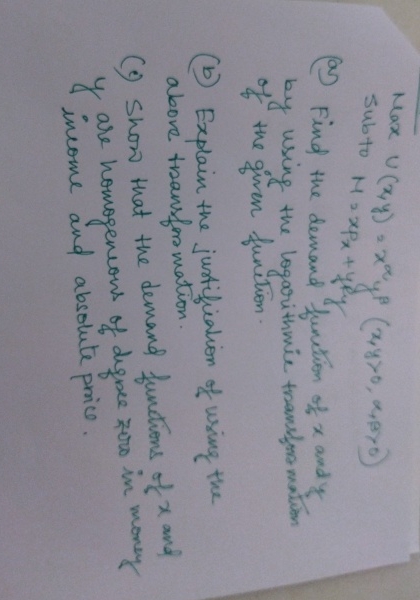 Max U(x,y) = x^α y^β (x,y>0, α,β>0)
Subto M = xPx + yPy
(a) Find the demand function of x and y
by using the logarithmic transformation
of the given function.
(b) Explain the justification of using the
above transformation.
(c) Show that the demand functions of x and
y are homogeneous of degree zero in money
income and absolute price.